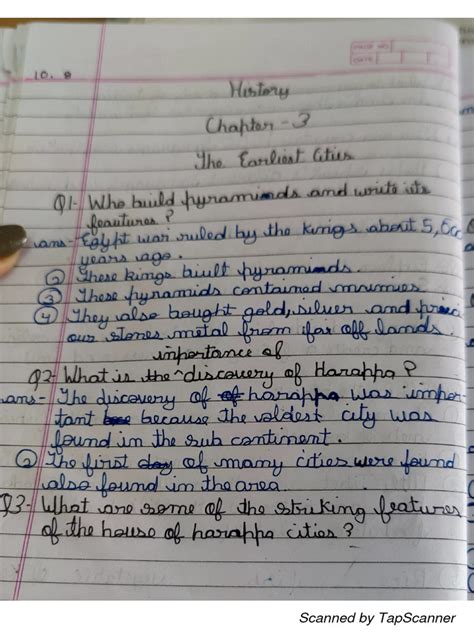 PAGE NO.
DATE
10.
History
Chapter - 3
The Earliest Cities
Q1- Who build pyraminds and write its
feautures ?
ans- Egypt was ruled by the kings about 5,
years ago.
② These kings biult pyraminds.
③ These pyramids contained mumies.
④ They also bought gold, silver and
ous stones metal from far off lands.
inportance of
Q2- What is the ^ discovery of Harappa ?
ans- The discovery of of harappa was impor
tant because the oldest city was
found in the sub continent.
② The first day of many cities were found
also found in the area.
Q3- What are some of the striking features
of the house of harappa cities ?
Scanned by TapScanner